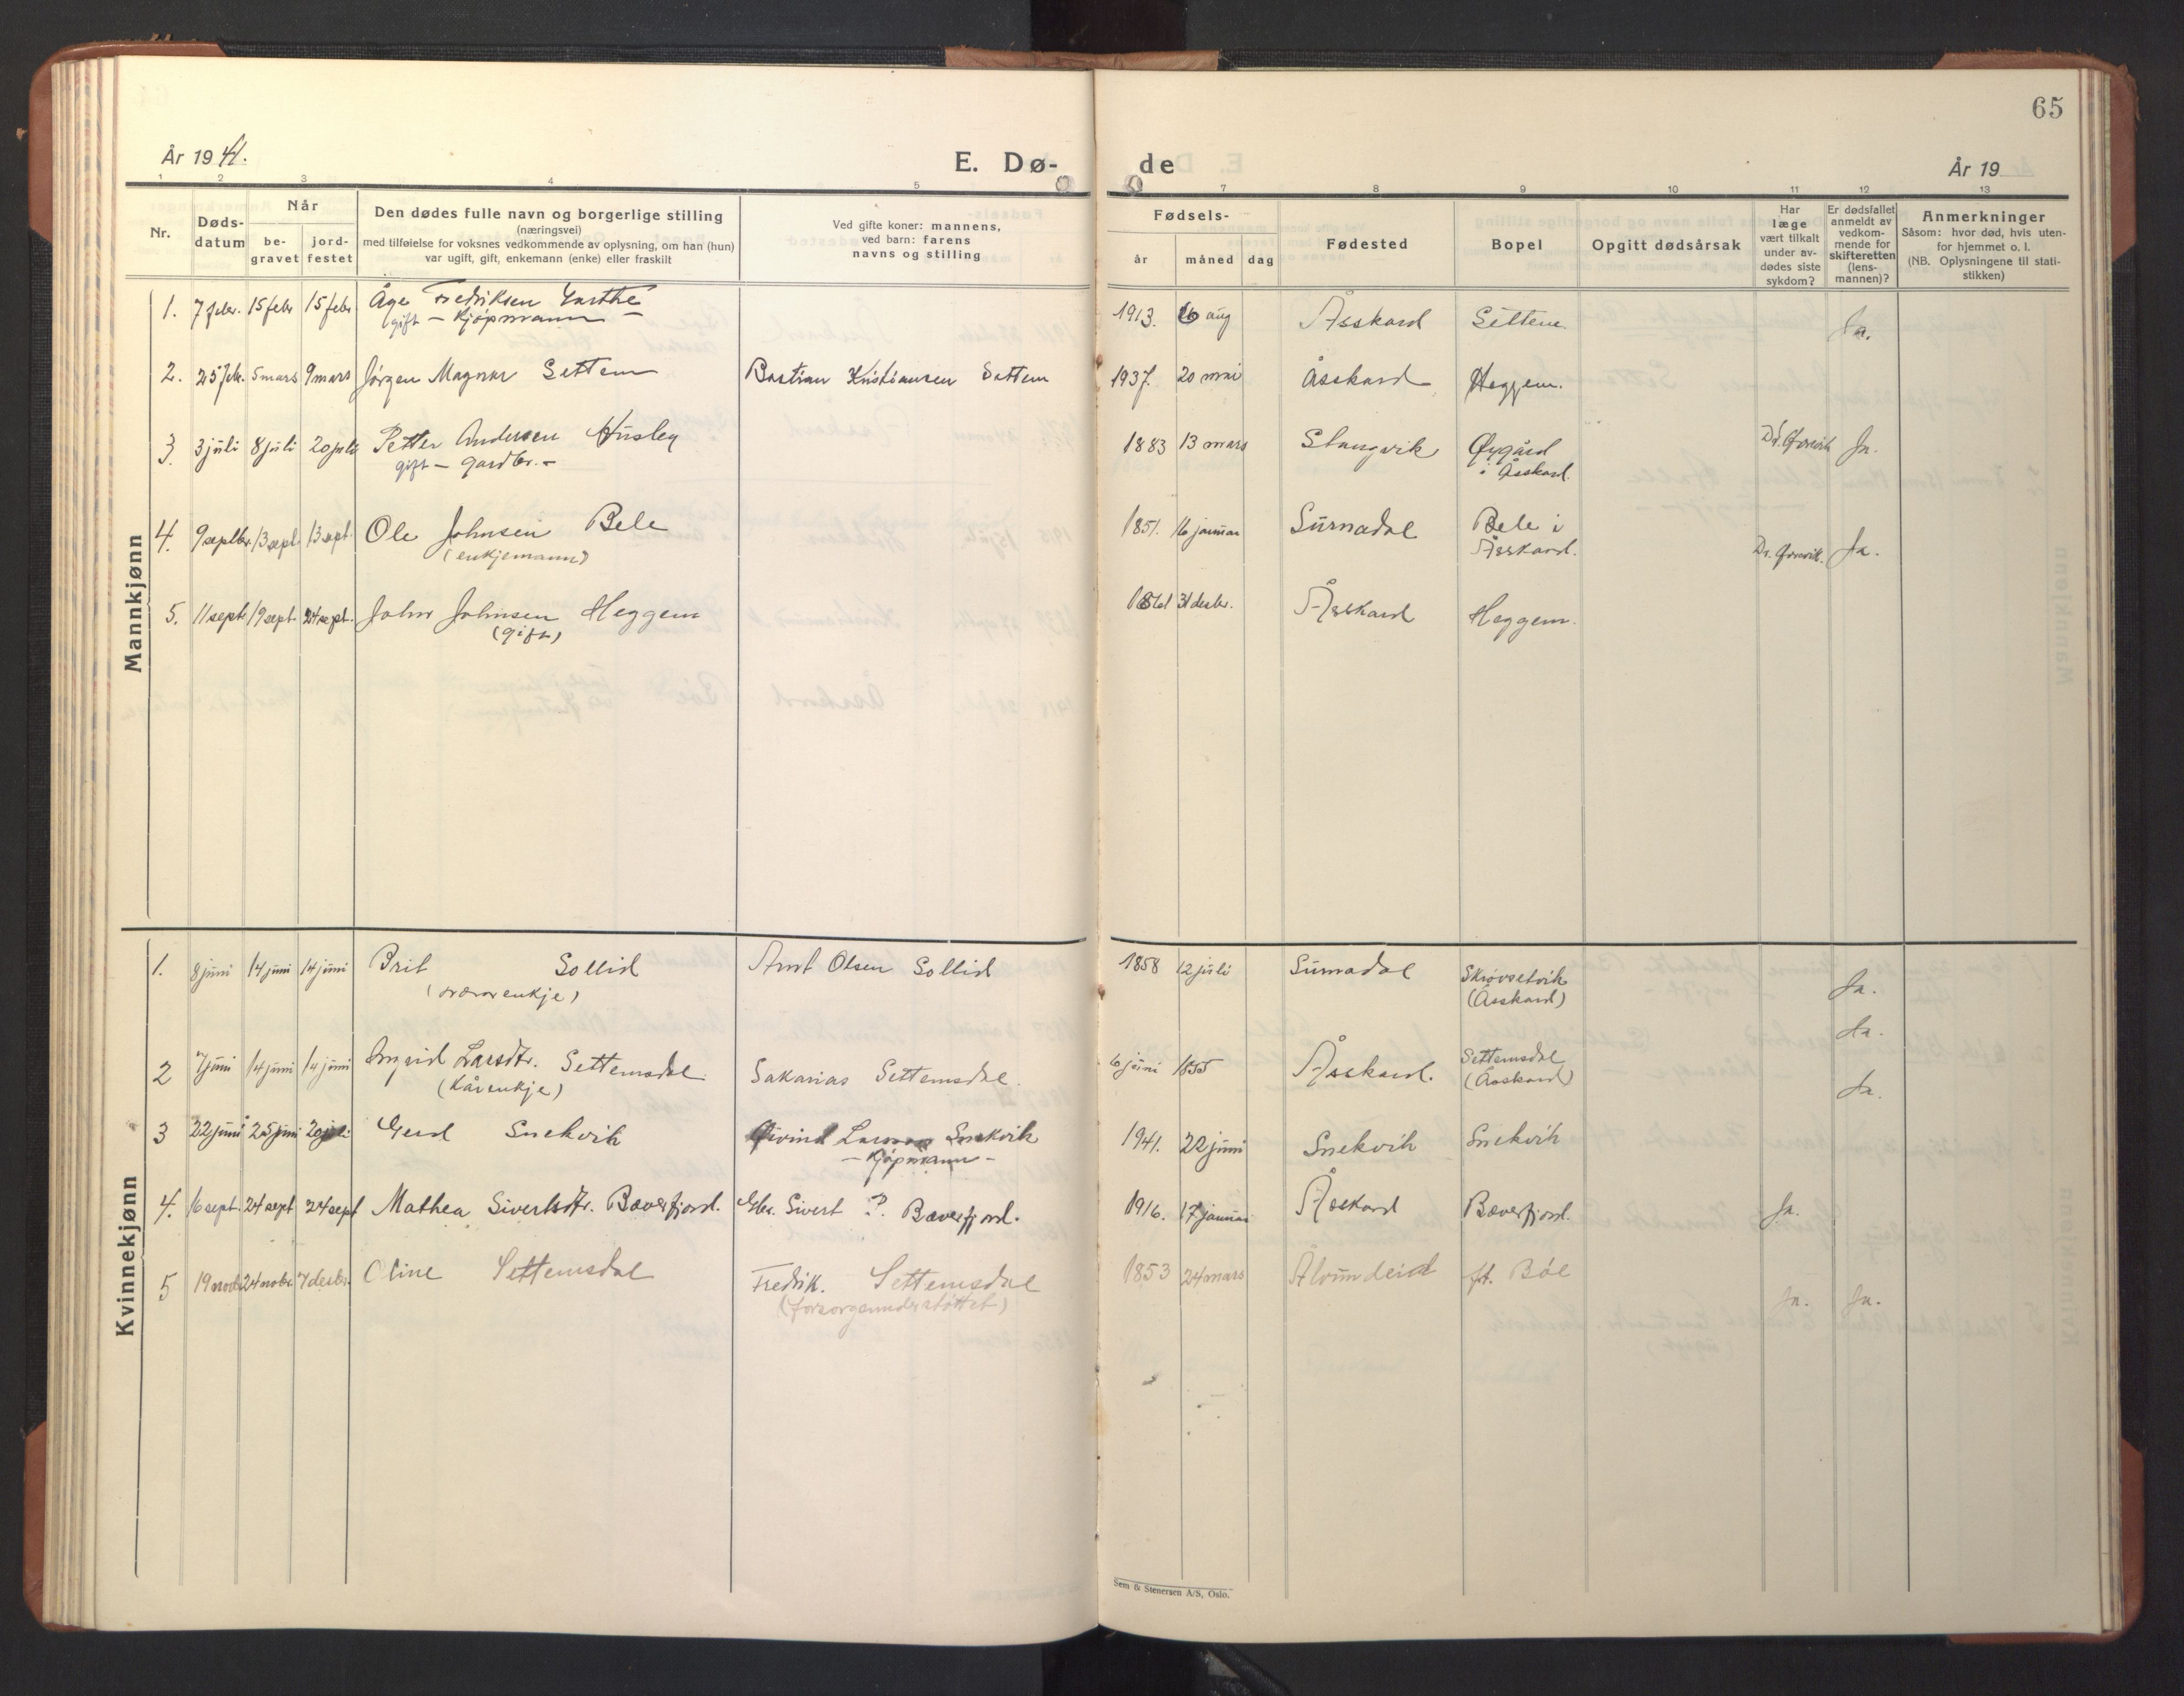 65
År 1941.
E. Dø-
de
År 19
1 2 3 4 5
7 8 9 10 11 12 13
Nr.
Døds-
datum
Når
be-
gravet
jord-
festet
Den dødes fulle navn og borgerlige stilling
(næringsvei)
med tilføielse for voksnes vedkommende av oplysning, om han (hun)
var ugift, gift, enkemann (enke) eller fraskilt
Ved gifte koner: mannens,
ved barn: farens
navns og stilling
Fødsels-
år måned dag
Fødested
Bopel
Opgitt dødsårsak
Har
læge
vært tilkalt
under av-
dødes siste
sykdom?
Er dødsfallet
anmeldt av
vedkom-
mende for
skifteretten
(lens-
mannen)?
Anmerkninger
Såsom: hvor død, hvis uten-
for hjemmet o. l.
(NB. Oplysningene til stati-
stikken)
Mannkjønn
1. 7 febr. 15 febr 15 febr Åge Fredriksen 1913. aug Åsskard Settem Ja.
gift - Kjøpmann -
2. 25 feb. 5 mars 9 mars Jørgen Magnar Settem Bastian Kristiansen Settem 1937. 20 mai Åsskard Heggem.
3. 3 juli 8 juli 20 juli Petter Andersen Husby 1883 13 mars Stangvik Øygård Ja.
gift - gardbr. - i Åsskard.
4. 9 septbr. 13 sept. 13 sept. Ole Johnsen Bele 1851. 16 januar Surnadal Bele i
(enkjemann) Åsskard. Ja.
5. 11 sept. 19 sept. 24 sept. John Johnsen Heggem 31 desbr. Åsskard Heggem.
(gift)
Kvinnekjønn
1. 8 juni 14 juni 14 juni Brit Sollid Arnt Olsen Sollid 1858 12 juli Surnadal Skrøvsetvik
(Åsskard) Ja.
Ja.
2 7 juni 14 juni 14 juni Ingrid Larsdtr. Settemsdal Sakarias Settemsdal. 6 juni 1855 Åsskard. Settemsdal
(kårenkje) (Åsskard)
Ja.
3 22 juni 25 juni 20 juli Gerd Snekvik Øivind Snekvik 1941. 22 juni Snekvik Snekvik
- Kjøpmann -
4. 16 sept. 24 sept 24 sept Mathea Sivertsdtr. Bæverfjord. Gbr. Sivert ? Bæverfjord. 1916. 17 januar Åsskard Bæverfjord. Ja.
5 19 novb. 24 novbr. 7 desbr. Oline Settemsdal Fredrik. Settemsdal 1853 24 mars Ålvundeid ft. Bøe
(forsorgsunderstøttet) Ja. Ja.
Sem & Stenersen A/S, Oslo.